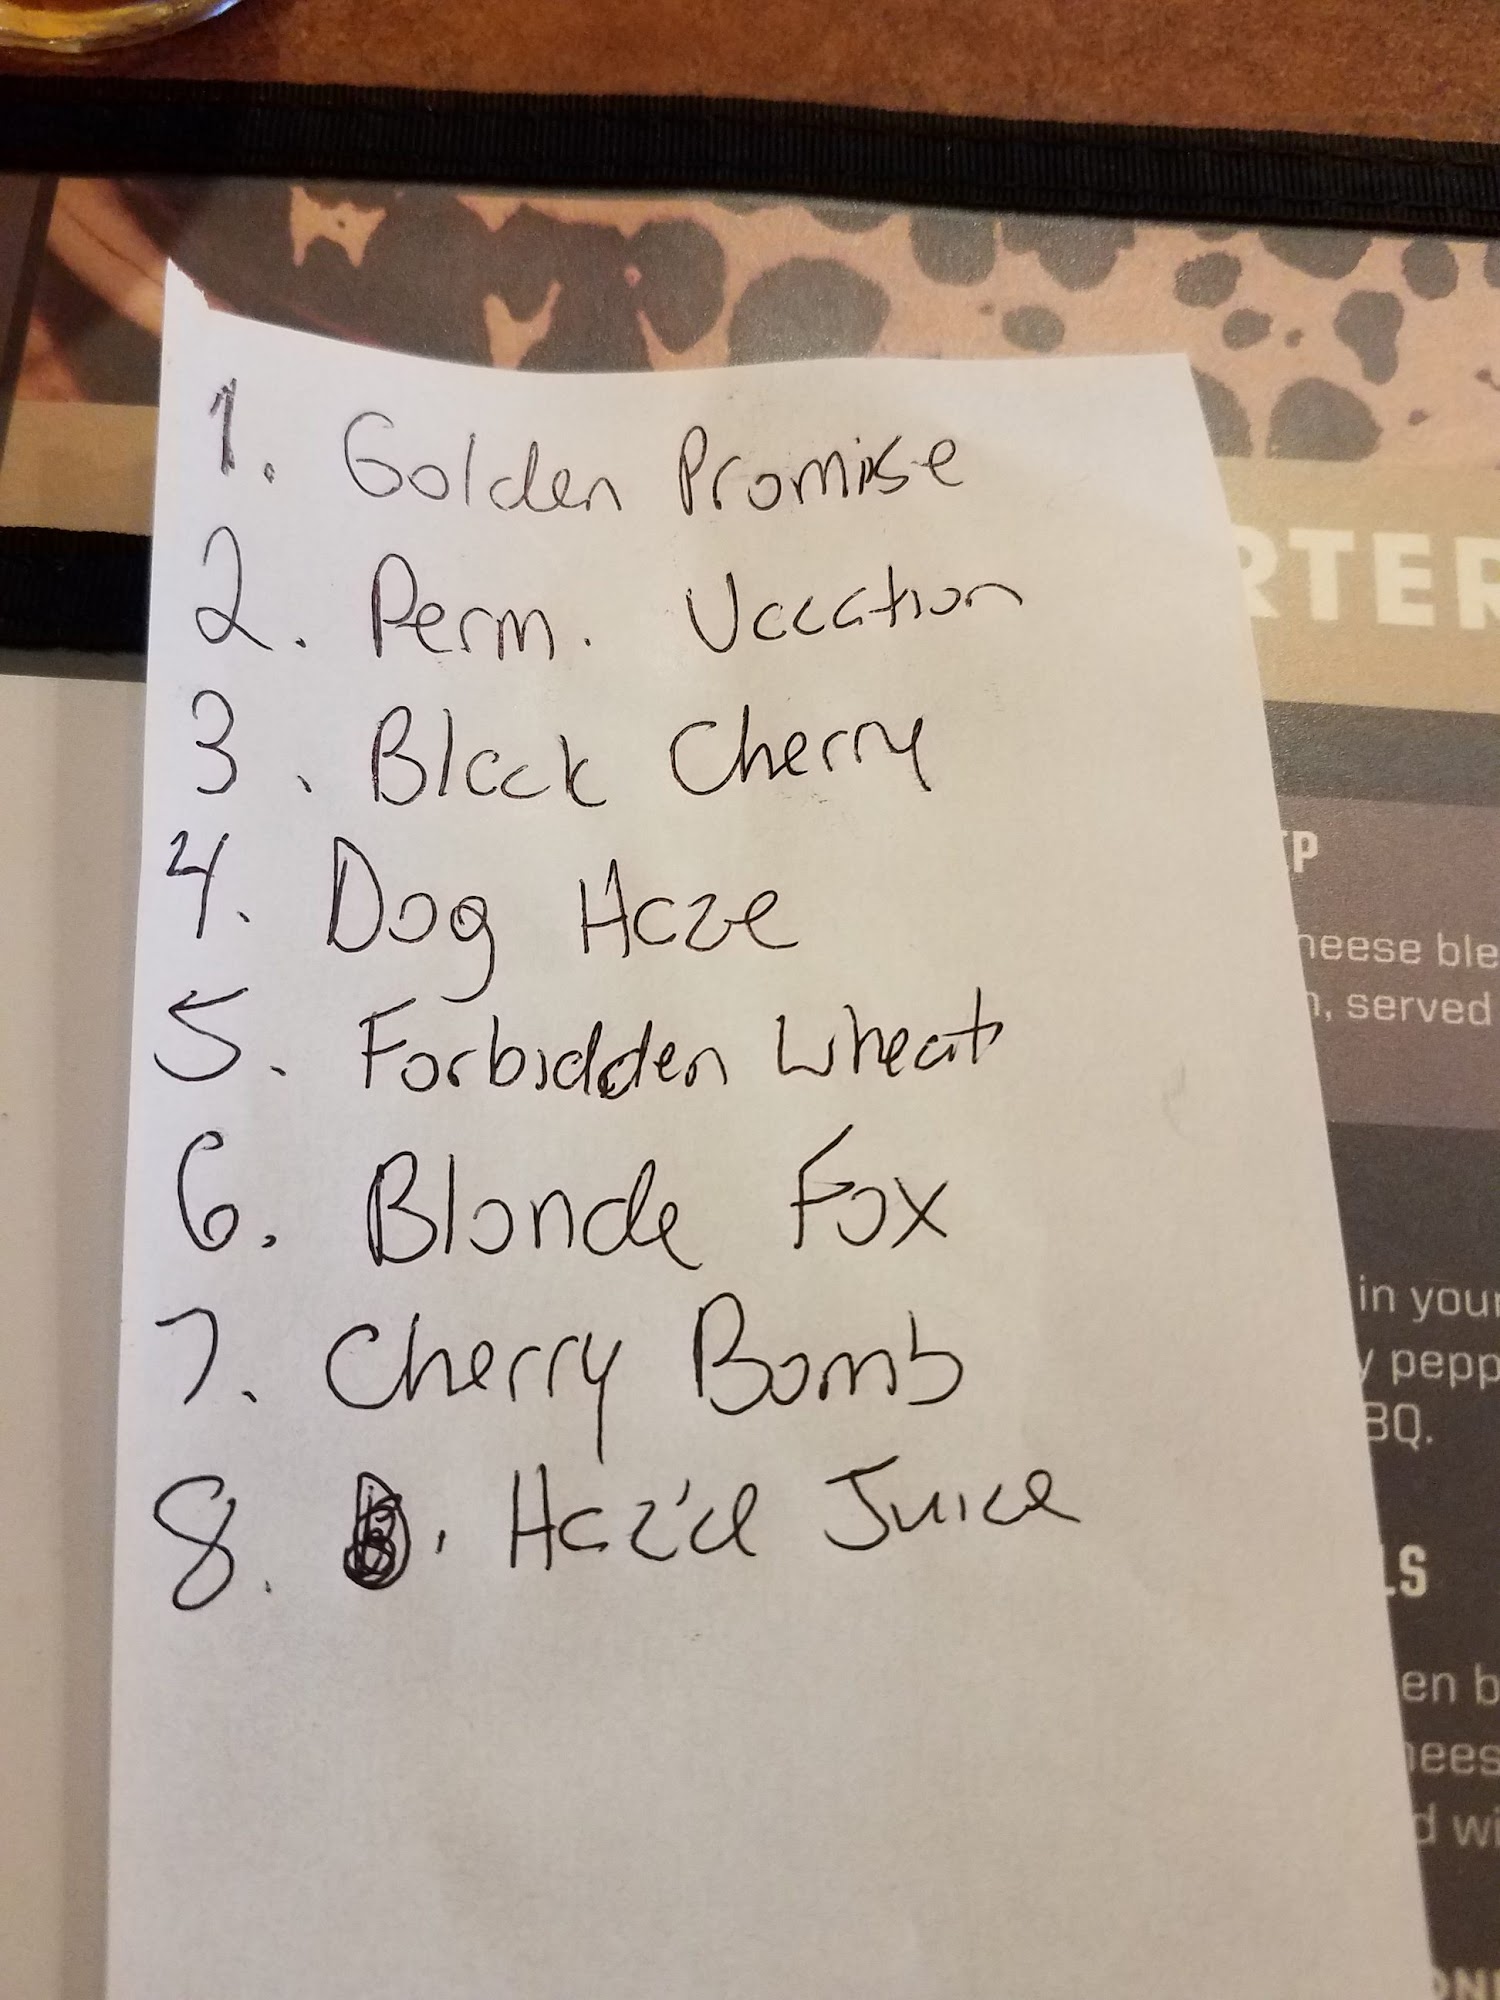 1. Golden Promise
2. Perm. Vacation
3. Black Cherry
4. Dog Haze
5. Forbidden Wheat
6. Blonde Fox
7. Cherry Bomb
8. Haz'd Juice
RTER
IP
heese ble
, served
in your
y pepp
BQ.
LS
en b
hees
d wi